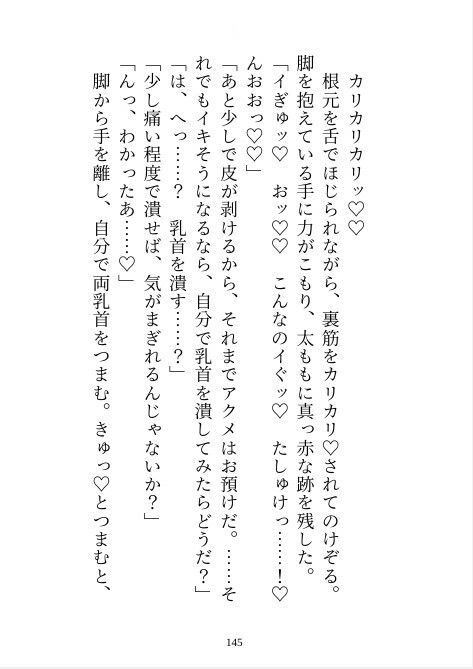 カリカリカリッ♡♡
根元を舌でほじられながら、裏筋をカリカリ♡されてのけぞる。
脚を抱えている手に力がこもり、太ももに真っ赤な跡を残した。
「イぎゅッ♡　おッ♡♡　こんなのイぐッ♡　たしゅけっ……！♡
んおおっ♡♡」
「あと少しで皮が剥けるから、それまでアクメはお預けだ。……そ
れでもイキそうになるなら、自分で乳首を潰してみたらどうだ？」
「は、へっ……？　乳首を潰す……？」
「少し痛い程度で潰せば、気がまぎれるんじゃないか？」
「んっ、わかったあ……♡」
脚から手を離し、自分で両乳首をつまむ。きゅっ♡とつまむと、
145